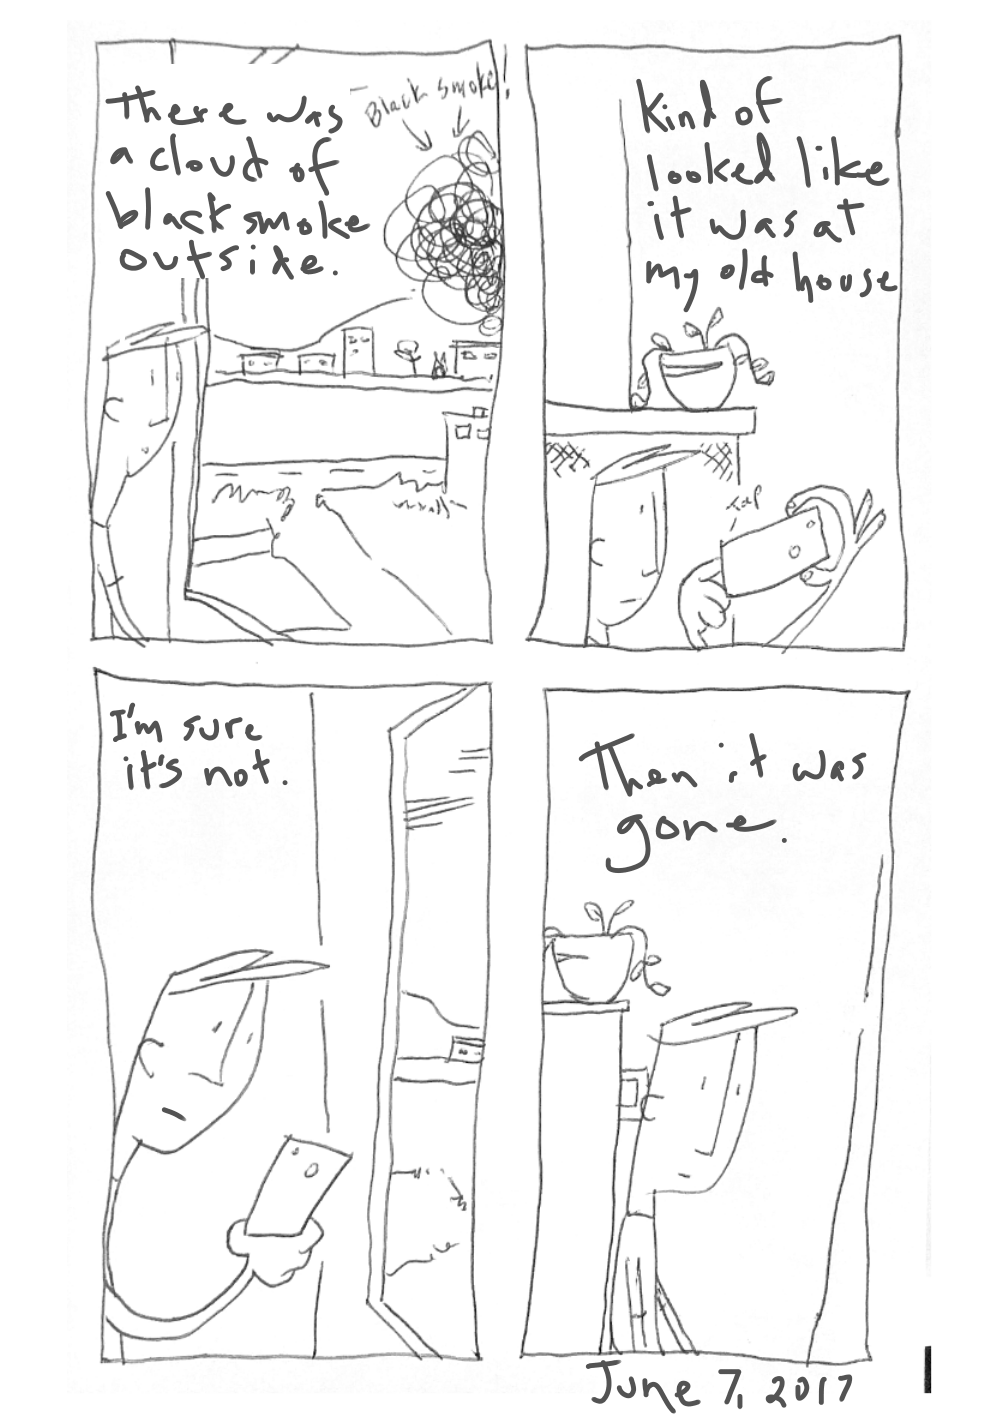 There was
a cloud of
black smoke
outside.
Black smoke!
Kind of
looked like
it was at
my old house
tap
I'm sure
it's not.
Then it was
gone.
June 7, 2017